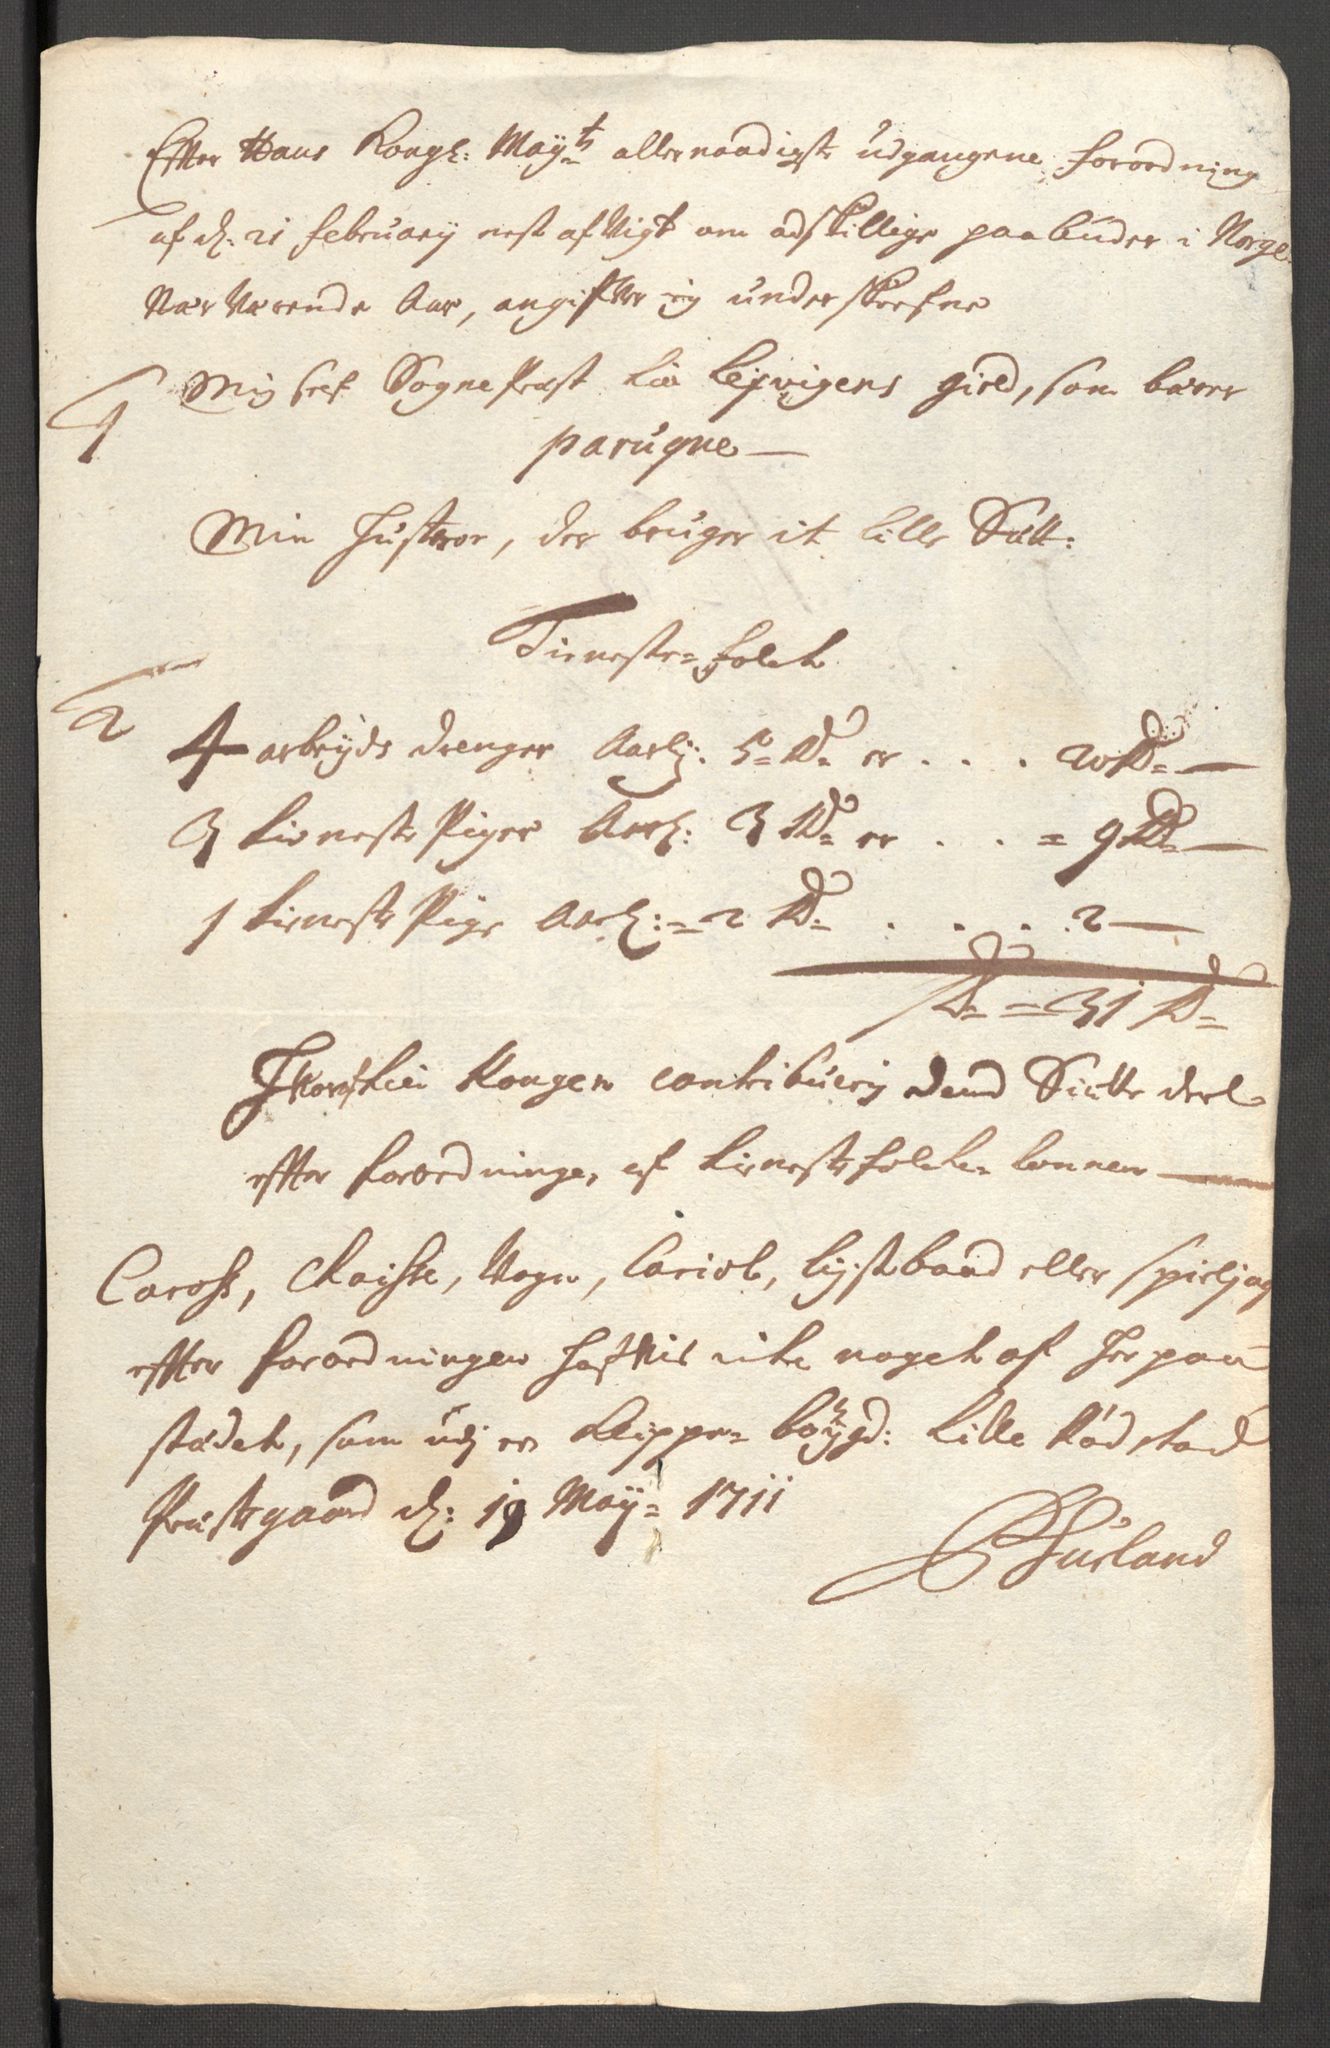 Effter Hans Kongl: Mayts allernaadigste udgangene forordning
af d: 21 february nest afvigt om adskillige paabuder i Norge
Nærværende Aar, angifver ieg underskrefne
1 Mig self Sogne Præst til Leyvigens gield, som bærer
parugne
Min Hustroe, der bruger it lille Sætt:
Tieneste-folch
2
4 arbeyds drenger Aarlig: 5 Rd er . . . 20 Rd
3 tieneste Piger Aarl: 3 Rd er . . = 9 Rd
1 tieneste Pige Aarl: = 2 Rd . . . . 2
Rd = 31 Rd
Hvoraf till Kongen contribueris dend Siætte deel
effter forordningen, af tienestefolchens lønner
Caross, Chaisse, Vogn, Cariol, lystbaad eller
effter forordningen hafves icke noget af her paa
stædet, som udj en Klippe-boÿgd: Lille
Præstegaard d: 19 May 1711
Hurland